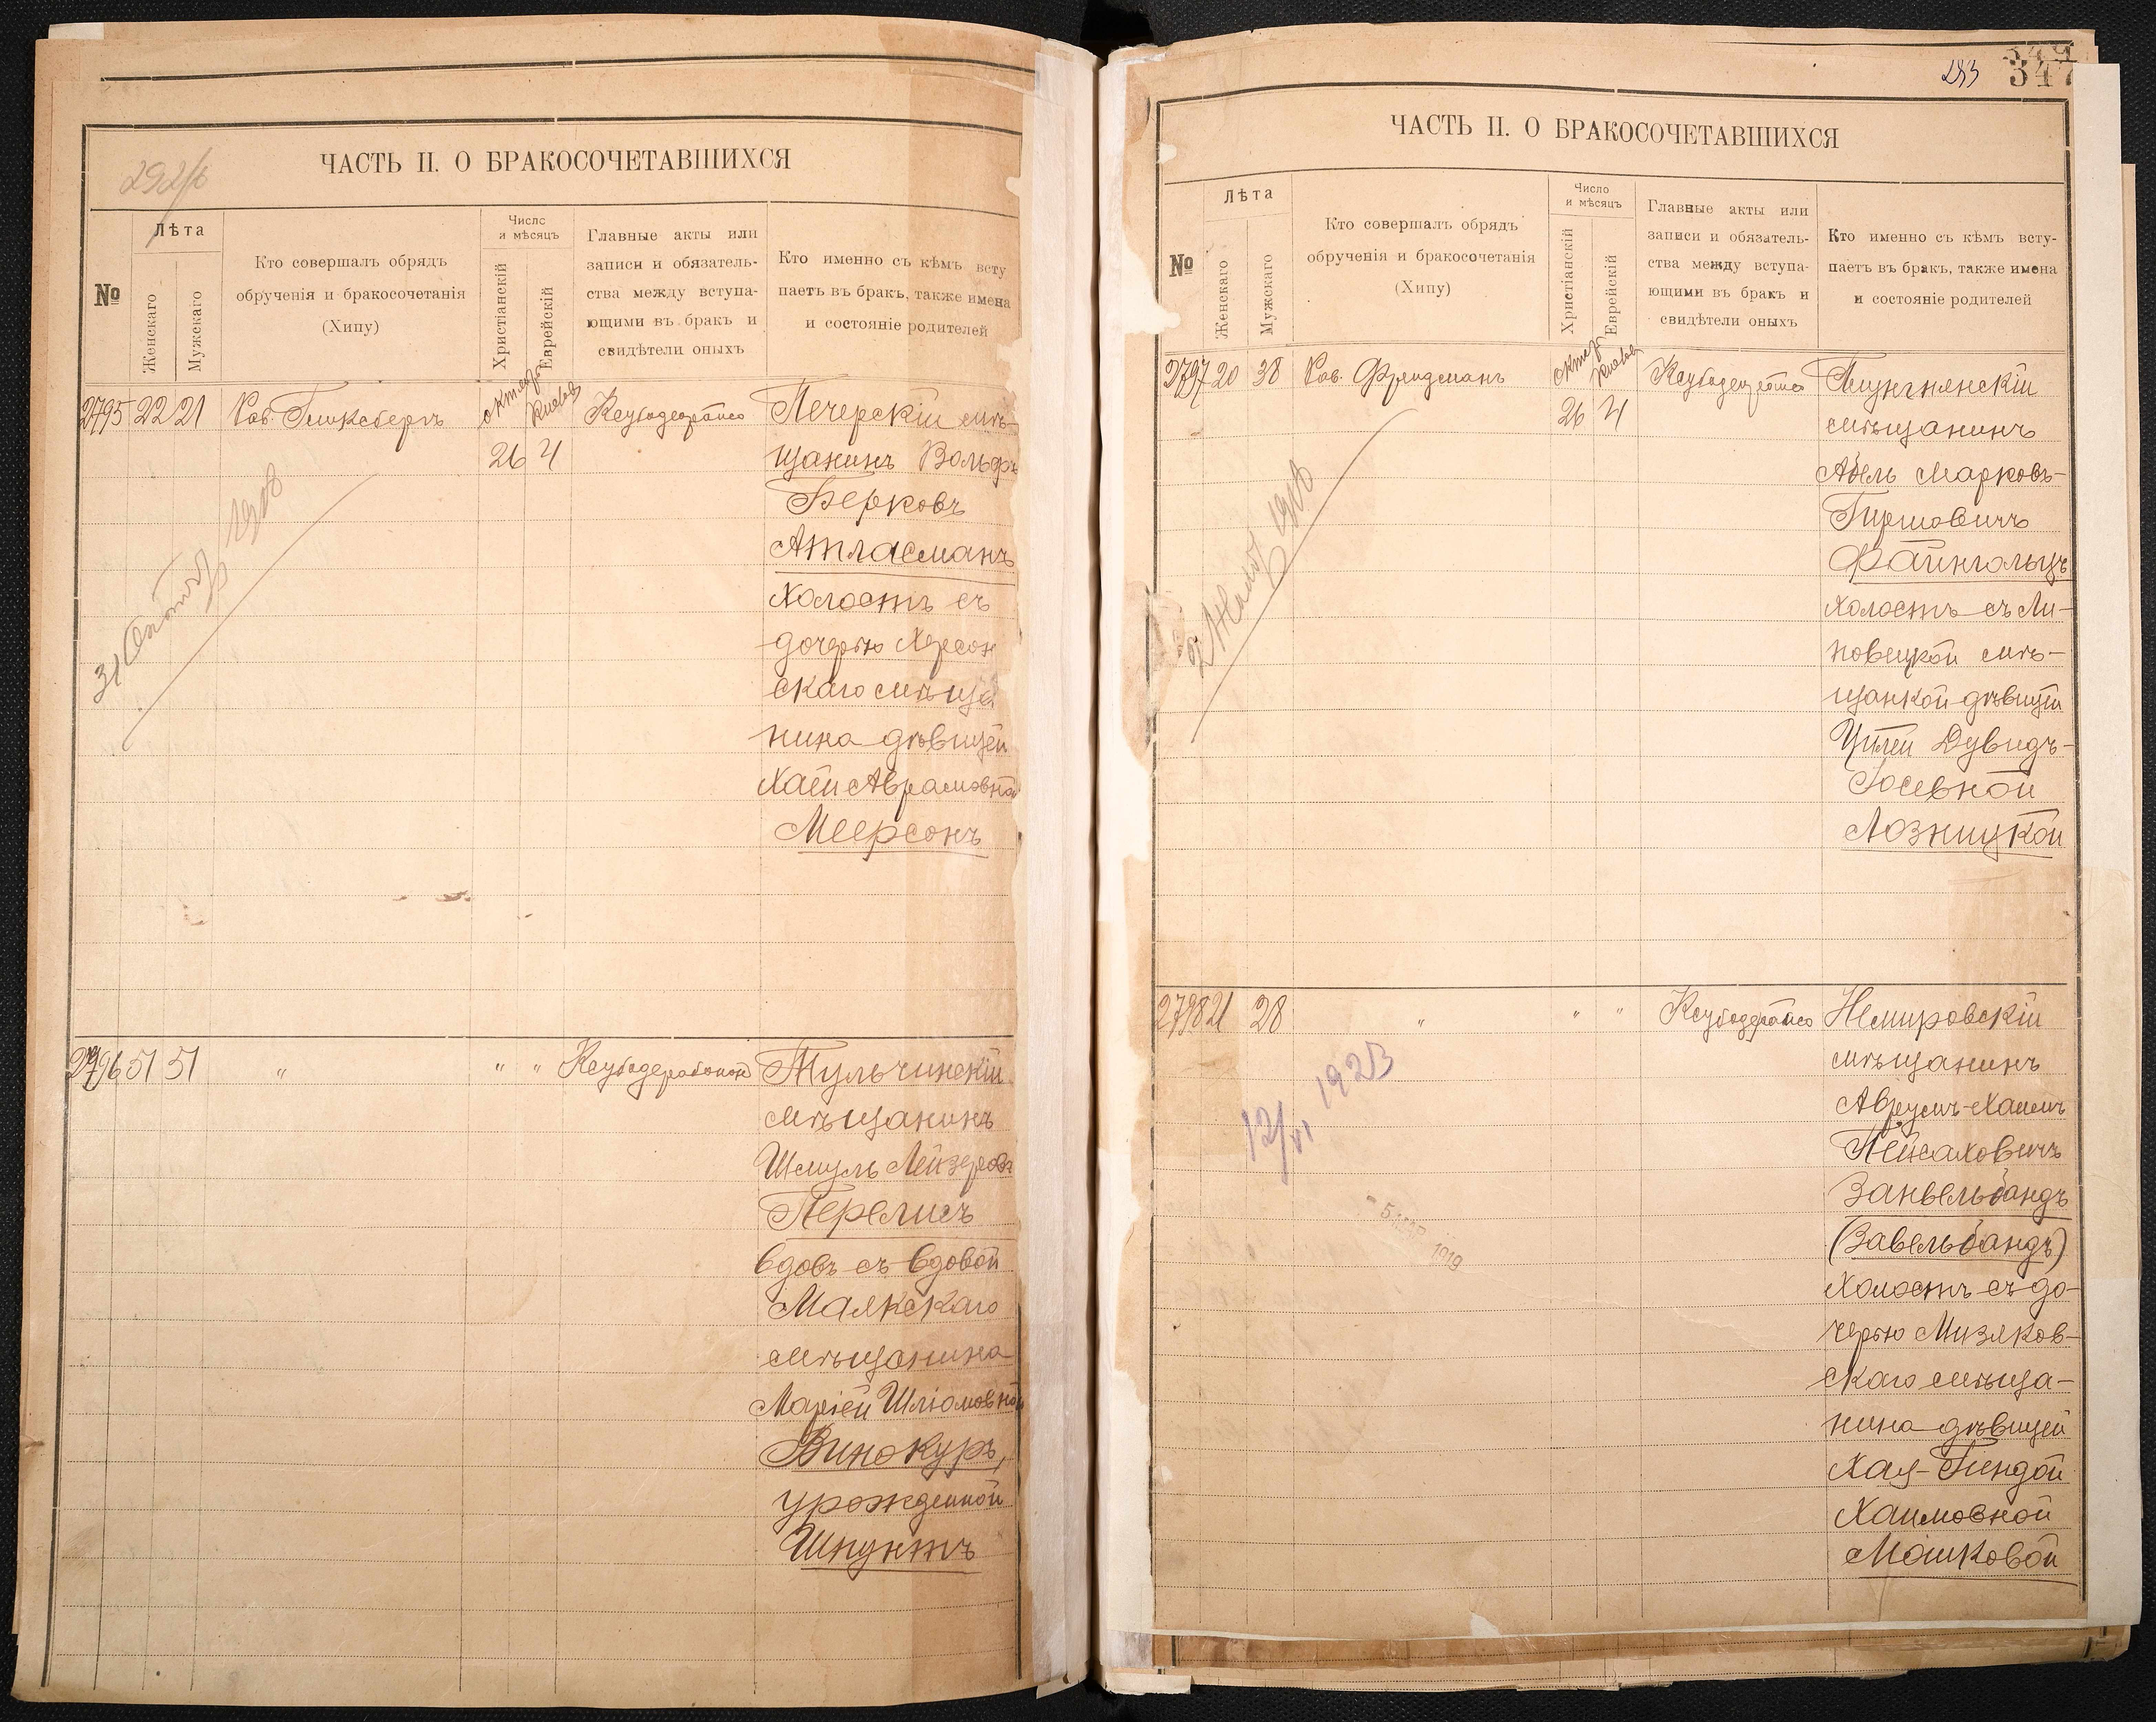 292/б
ЧАСТЬ II. О БРАКОСОЧЕТАВШИХСЯ
№
Лѣта
Женскаго
Мужскаго
Кто совершалъ обрядъ
обрученія и бракосочетанія
(Хипу)
Число
и мѣсяцъ
Христіанскій
Еврейскій
Главные акты или
записи и обязатель-
ства между вступа-
ющими въ бракъ и
свидѣтели оныхъ
Кто именно съ кѣмъ всту
паетъ въ бракъ, также имена
и состояніе родителей
2795 22 21 Рав. Гликсбергъ
26 4
Печерскій мѣ-
щанинъ Вольфъ
Берковъ
Атласманъ
холостъ съ
дочерью Херсон
скаго мѣща
нина дѣвицей
Хаей Аврамовной
Меерсонъ
31 1918
2796 51 51 " " "
Тульчинскій
мѣщанинъ
Шмуль Лейзеровъ
Перелисъ
вдовъ съ вдовой
Маякскаго
мѣщанина
Маріей Шліомовной
Винокуръ,
урожденной
Шпунтъ
283
349
347
ЧАСТЬ II. О БРАКОСОЧЕТАВШИХСЯ
№
Лѣта
Женскаго
Мужскаго
Кто совершалъ обрядъ
обрученія и бракосочетанія
(Хипу)
Число
и мѣсяцъ
Христіанскій
Еврейскій
Главные акты или
записи и обязатель-
ства между вступа-
ющими въ бракъ и
свидѣтели оныхъ
Кто именно съ кѣмъ всту-
паетъ въ бракъ, также имена
и состояніе родителей
2797 20 38 Рав. Фридманъ
26 4
мѣщанинъ
Абель Марковъ-
Гершовичъ
Файнгольцъ
холостъ съ Ли-
новецкой мѣ-
щанкой дѣвицей
Цилей Дувидъ-
Іосевной
Лозницкой
1918
2798 21 28 " " "
Немировскій
мѣщанинъ
Аврумъ-Хаимъ
Пейсаховичъ
Занвельбандъ
(Завельбандъ)
холостъ съ до-
черью Мизяков-
скаго мѣща-
нина дѣвицей
Хая-Гиндой
Хаимовной
Машковой
12/VI 1923
- 5 МАР 1919